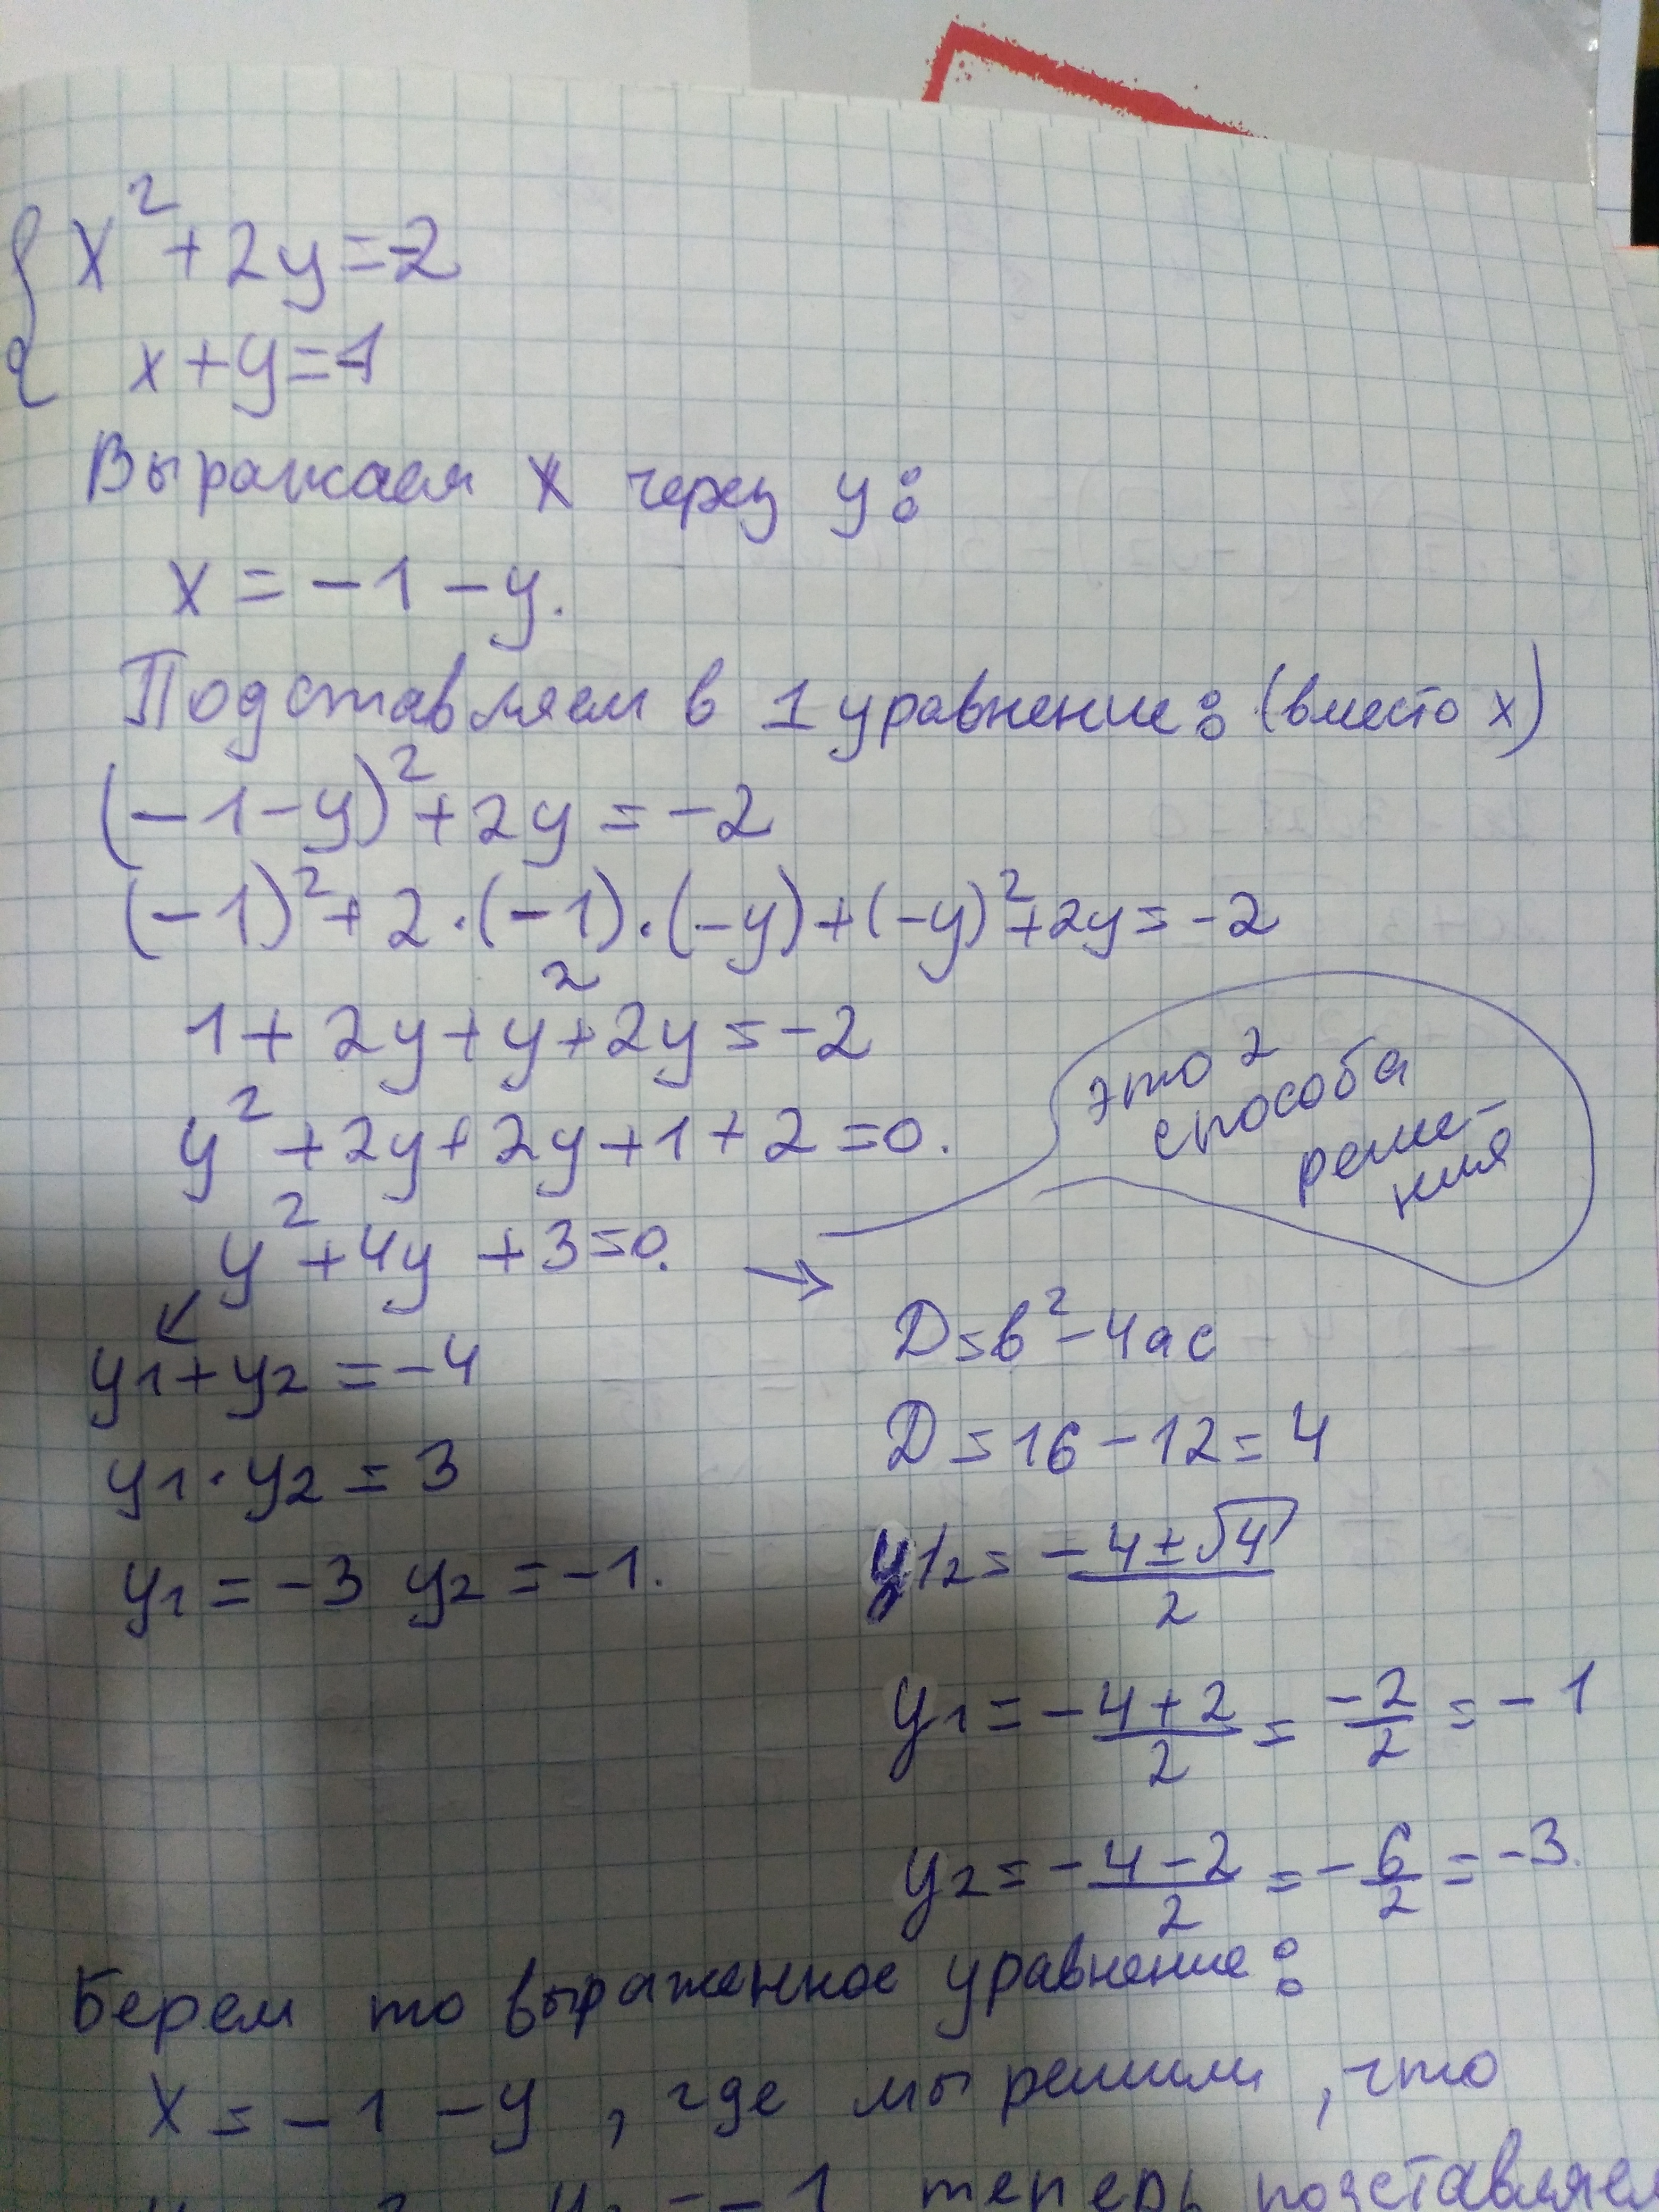 { x² + 2y = -2
x + y = -1
Выражаем x через y:
x = -1 - y.
Подставляем в 1 уравнение: (вместо x)
(-1-y)² + 2y = -2
(-1)² + 2·(-1)·(-y) + (-y)² + 2y = -2
1 + 2y + y² + 2y = -2
y² + 2y + 2y + 1 + 2 = 0.
y² + 4y + 3 = 0. →
это 2
способа
реше-
ния
↙
y₁ + y₂ = -4
y₁ · y₂ = 3
y₁ = -3 y₂ = -1.
D = b² - 4ac
D = 16 - 12 = 4
y₁/₂ = (-4 ± √4)/2
y₁ = (-4 + 2)/2 = -2/2 = -1
y₂ = (-4 - 2)/2 = -6/2 = -3.
Берем то выраженное уравнение:
x = -1 - y, где мы решили, что
y₂ = -1 теперь подставляем